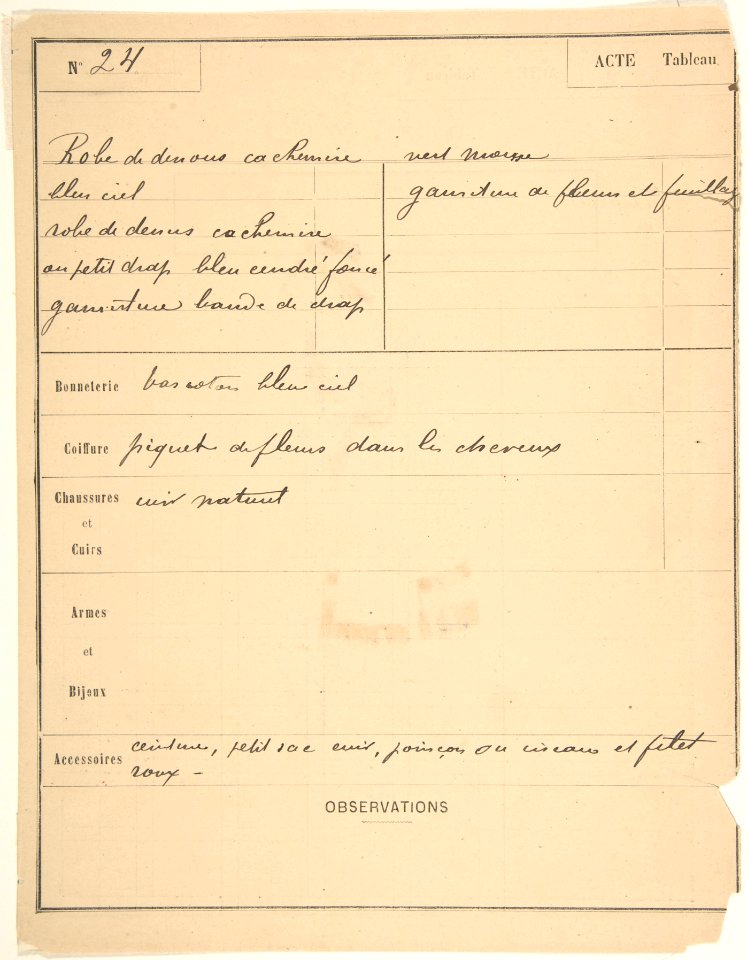 N° 24
ACTE Tableau
Robe de dessous cachemire
bleu ciel
robe de dessus cachemire
ou petit drap bleu cendré foncé
garniture bande de drap
vert mousse
garniture de fleurs et feuillag
Bonneterie bas coton bleu ciel
Coiffure piquet de fleurs dans les cheveux
Chaussures et Cuirs cuir naturel
Armes
et
Bijoux
Accessoires ceinture, petit sac cuir, poinçon ou ciseaux et filet
roux –
OBSERVATIONS